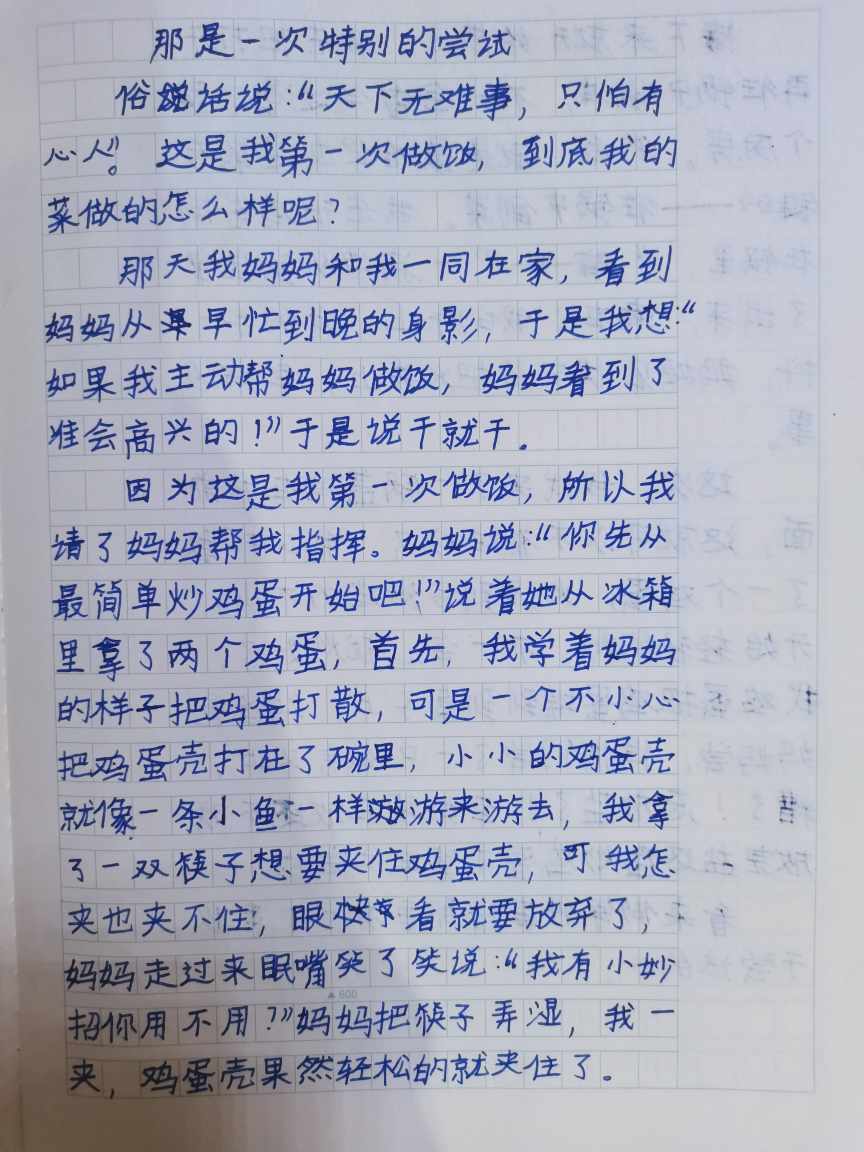 那是一次特别的尝试
俗话说：“天下无难事，只怕有
心人”。这是我第一次做饭，到底我的
菜做的怎么样呢？
那天我妈妈和我一同在家，看到
妈妈从早忙到晚的身影，于是我想：“
如果我主动帮妈妈做饭，妈妈看到了
准会高兴的！”于是说干就干。
因为这是我第一次做饭，所以我
请了妈妈帮我指挥。妈妈说：“你先从
最简单炒鸡蛋开始吧！”说着她从冰箱
里拿了两个鸡蛋，首先，我学着妈妈
的样子把鸡蛋打散，可是一个不小心
把鸡蛋壳打在了碗里，小小的鸡蛋壳
就像一条小鱼一样游来游去，我拿
了一双筷子想要夹住鸡蛋壳，可我怎
夹也夹不住，眼看就要放弃了，
妈妈走过来眠嘴笑了笑说：“我有小妙
招你用不用？”妈妈把筷子弄湿，我一
夹，鸡蛋壳果然轻松的就夹住了。
▲600